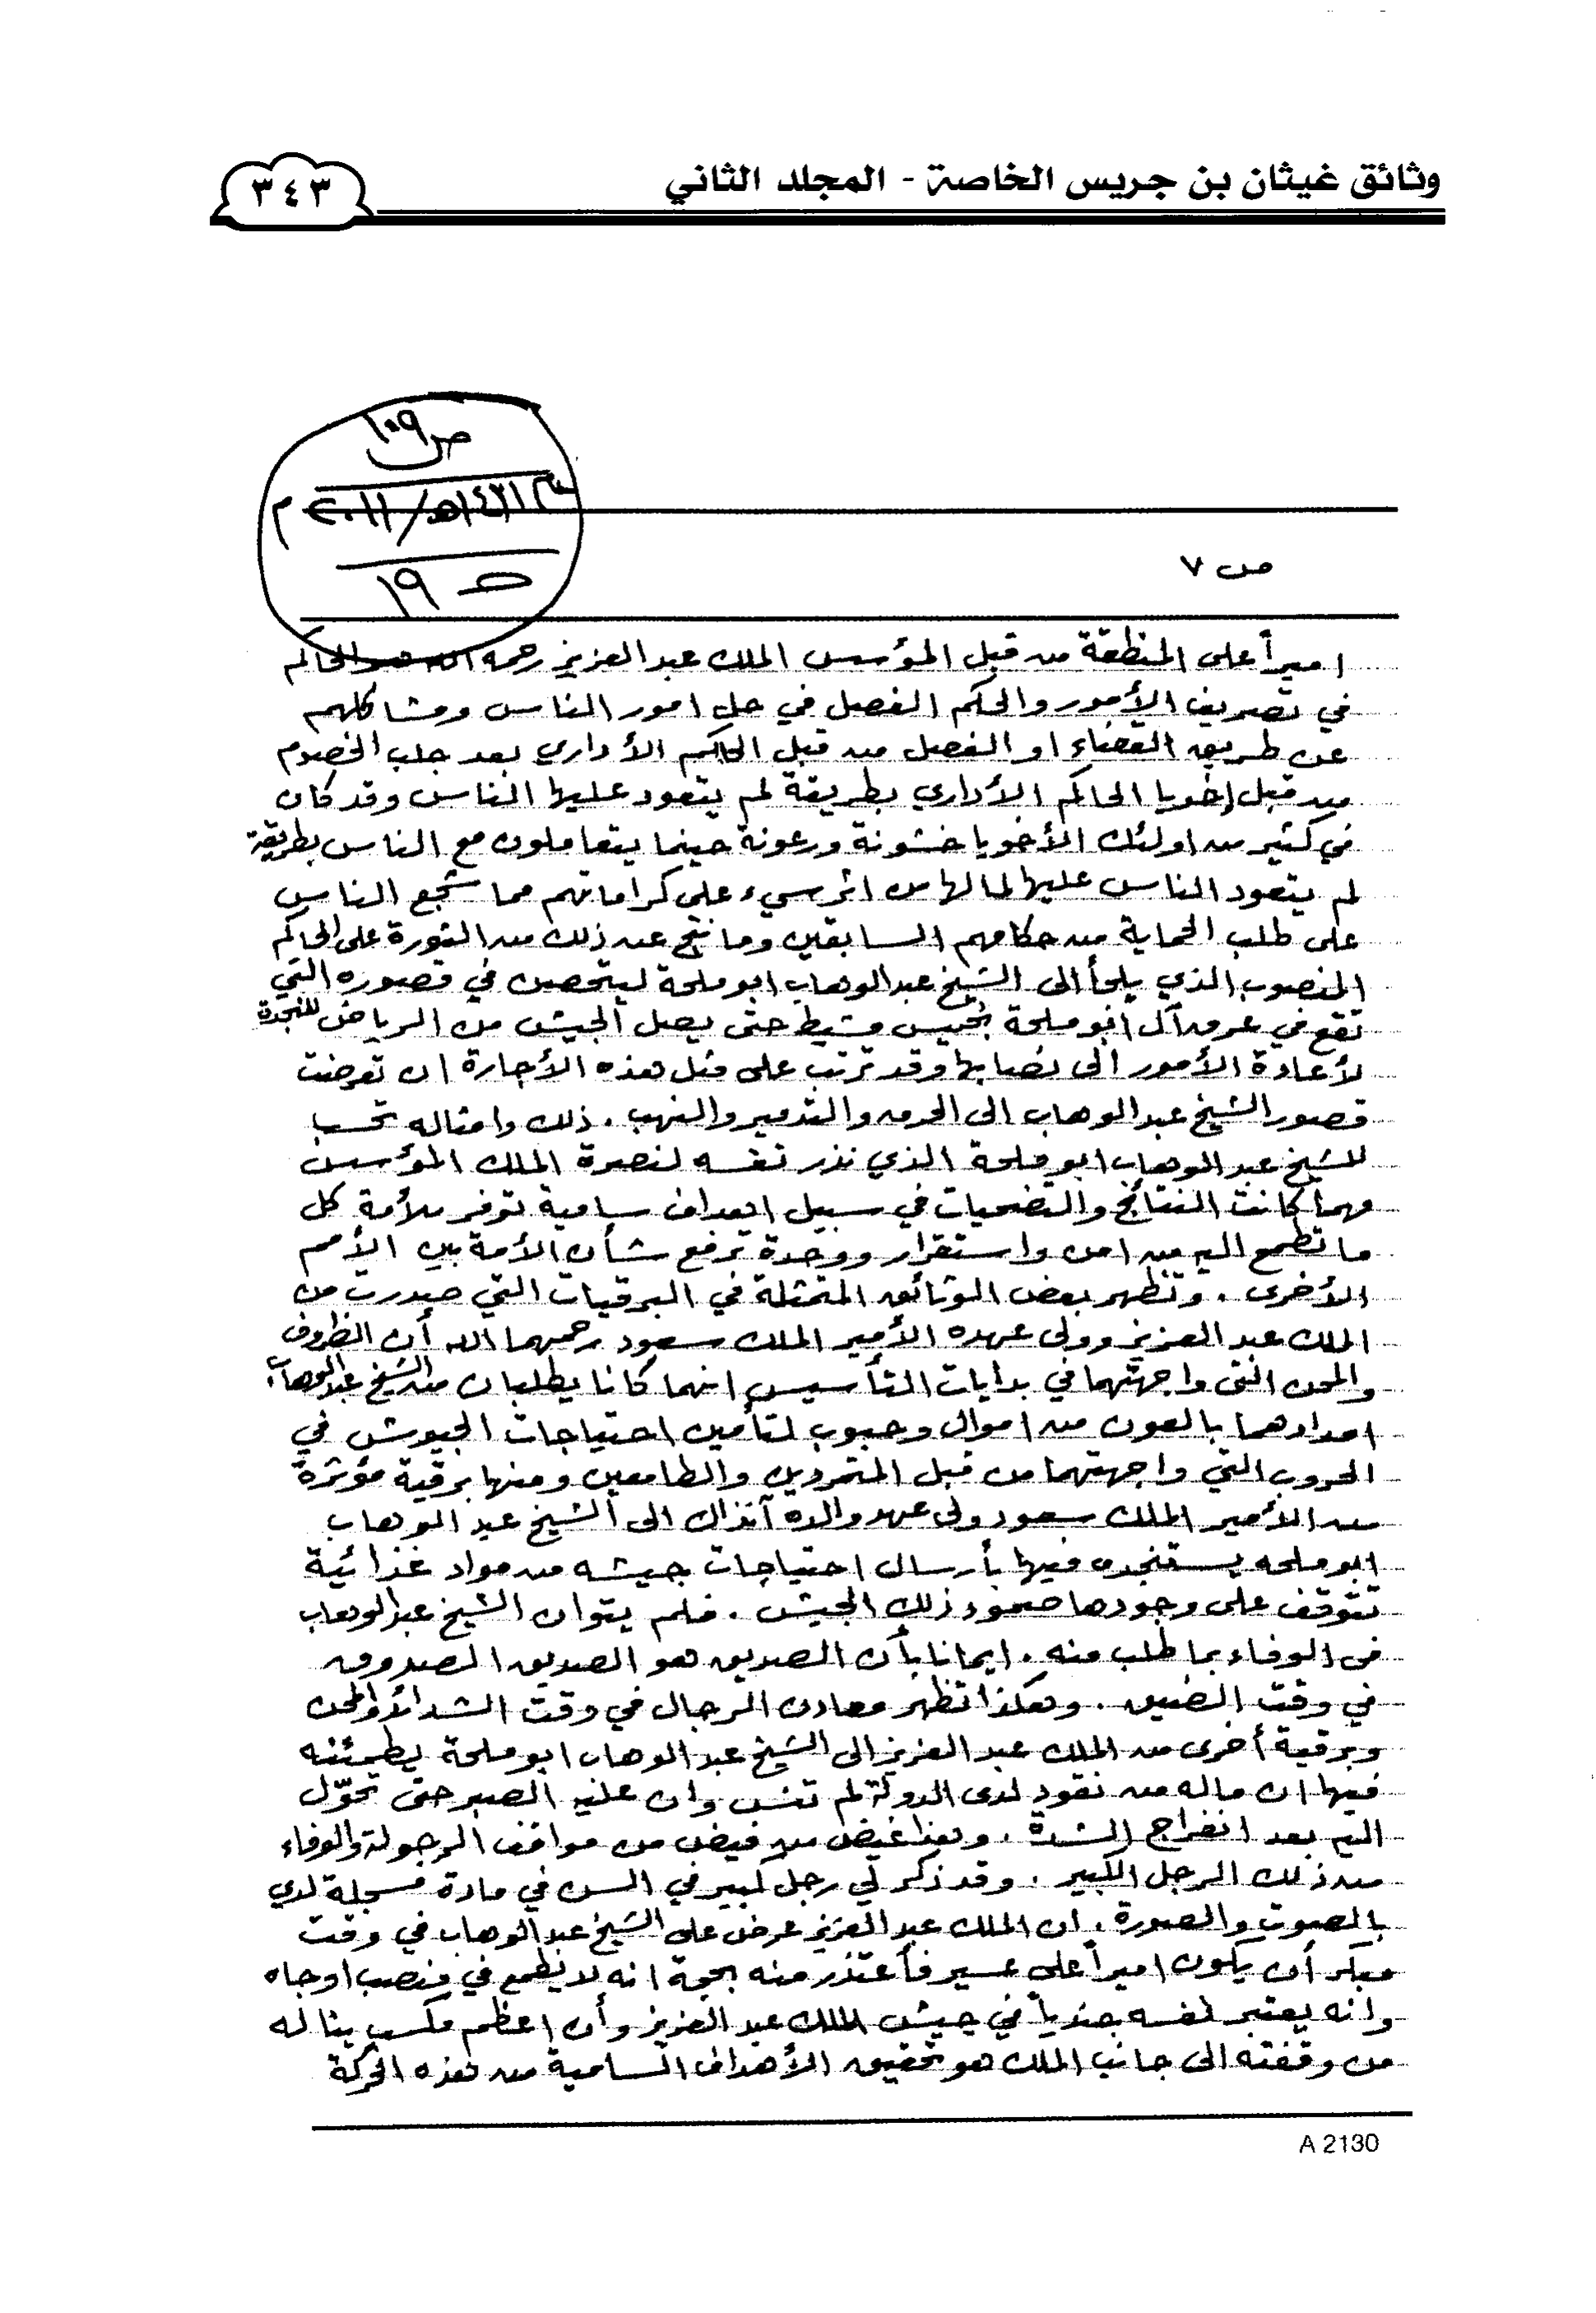 وثائق غيثان بن جريس الخاصة - المجلد الثاني
٣٤٣
ص١٠٩
١٤٣٢هـ/٢٠١١م
١٩
ص ٧
اميراً على المنطقة من قبل المؤسس الملك عبد العزيز رحمه الله هو الحاكم
في تصريف الأمور والحكم الفصل في حل امور الناس ومشاكلهم
عن طريق القضاء او الفصل من قبل الحاكم الأداري بعد جلب الخصوم
من قبل إخويا الحاكم الأداري بطريقة لم يتعود عليها الناس وقد كان
في كثير من اولئك الأخويا خشونة ورعونة حينما يتعاملون مع الناس بطريقة
لم يتعود الناس عليها لما لها من اثر سيء على كراماتهم مما شجع الناس
على طلب الحماية من حكامهم السابقين وما نتج عن ذلك من الثورة على الحاكم
المنصوب الذي يلجأ الى الشيخ عبد الوهاب ابو ملحة ليتحصن في قصوره التي
تقع في عرق آل ابو ملحة بخميس مشيط حتى يصل الجيش من الرياض للنجدة
لأعادة الأمور الى نصابها وقد ترتب على مثل هذه الأجارة ان تعرضت
قصور الشيخ عبد الوهاب الى الحرق والتدمير والنهب . ذلك وامثاله تحسب
للشيخ عبد الوهاب ابو ملحة الذي نذر نفسه لنصرة الملك المؤسس
مهما كانت النتائج والتضحيات في سبيل اهداف سامية توفر للأمة كل
ما تطمع اليه من امن واستقرار ووحدة ترفع شأن الأمة بين الأمم
الأخرى . وتظهر بعض الوثائق المتمثلة في البرقيات التي صدرت من
الملك عبد العزيز وولى عهده الأمير الملك سعود رحمهما الله أن الظروف
والمحن التى واجهتهما في بدايات التأسيس انهما كانا يطلبان من الشيخ عبد الوهاب
امدادهما بالعون من اموال وحبوب لتأمين احتياجات الجيوش في
الحروب التي واجهتهما من قبل المتمردين والطامعين ومنها برقية مؤثرة
من الأمير الملك سعود ولى عهد والده آنذاك الى الشيخ عبد الوهاب
ابو ملحه يستنجده فيها بأرسال احتياجات جيشه من مواد غذائية
تتوقف على وجودها صمود ذلك الجيش . فلم يتوان الشيخ عبد الوهاب
في الوفاء بما طلب منه . ايمانا بأن الصديق هو الصديق الصدوق
في وقت الضيق . وهكذا تظهر معادن الرجال في وقت الشدائد والمحن
وبرقية أخرى من الملك عبد العزيز الى الشيخ عبد الوهاب ابو ملحة يطمئنه
فيها ان ماله من نقود لدى الدولة لم تنس وان عليه الصبر حتى تحوّل
اليه بعد انفراج الشدة . وهذا غيض من فيض من مواقف الرجولة والوفاء
من ذلك الرجل الكبير . وقد ذكر لي رجل كبير في السن في مادة مسجلة لدي
بالصوت والصورة . ان الملك عبد العزيز عرض على الشيخ عبد الوهاب في وقت
مبكر أن يكون اميراً على عسير فأعتذر منه بحجة انه لا يطمع في منصب اوجاه
وانه يعتبر نفسه جندياً في جيش الملك عبد العزيز وأن اعظم مكسب يناله
من وقفته الى جانب الملك هو تحقيق الأهداف السامية من هذه الحركة
A 2130